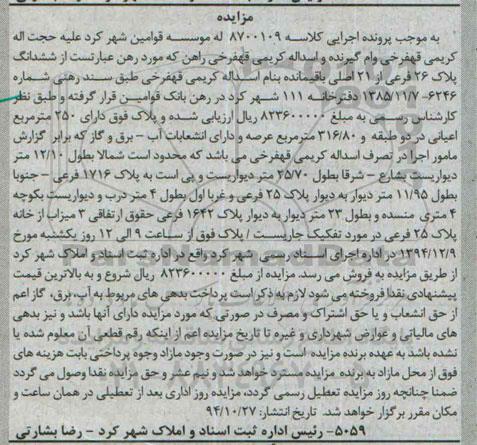 مزایده
به موجب پرونده اجرایی کلاسه ۸۷۰۰۱۰۹ له موسسه قوامین شهر کرد علیه حجت اله
کریمی قهفرخی وام گیرنده و اسداله کریمی قهفرخی راهن که مورد رهن عبارتست از ششدانگ
پلاک ۲۶ فرعی از ۲۱ اصلی باقیمانده بنام اسداله کریمی قهفرخی طبق سند رهنی شماره
۶۲۴۶- ۱۳۸۵/۱۱/۷ دفترخانه ۱۱۱ شهر کرد در رهن بانک قوامین قرار گرفته و طبق نظر
کارشناس رسمی به مبلغ ۸۲۳۶۰۰۰۰۰ ریال ارزیابی شده و پلاک فوق دارای ۲۵۰ مترمربع
اعیانی در دو طبقه و ۳۱۶/۸۰ مترمربع عرصه و دارای انشعابات آب – برق و گاز که برابر گزارش
مامور اجرا در تصرف اسداله کریمی قهفرخی می باشد که محدود است شمالا بطول ۱۲/۱۰ متر
دیواریست بشارع – شرقا بطول ۲۵/۷۰ متر دیواریست و پی است به پلاک ۱۷۱۶ فرعی – جنوبا
بطول ۱۱/۹۵ متر دیوار به دیوار پلاک ۲۵ فرعی و غربا اول بطول ۴ متر درب و دیواریست بکوچه
۴ متری منسده و بطول ۲۳ متر دیوار به دیوار پلاک ۱۶۴۲ فرعی حقوق ارتفاقی ۳ میزاب از خانه
پلاک ۲۵ فرعی در مورد تفکیک جاریست / پلاک فوق از ساعت ۹ الی ۱۲ روز یکشنبه مورخ
۱۳۹۴/۱۲/۹ در اداره اجرای اسناد رسمی شهر کرد واقع در اداره ثبت اسناد و املاک شهر کرد
از طریق مزایده به فروش می رسد. مزایده از مبلغ ۸۲۳۶۰۰۰۰۰ ریال شروع و به بالاترین قیمت
پیشنهادی نقدا فروخته می شود لازم به ذکر است پرداخت بدهی های مربوط به آب، برق، گاز اعم
از حق انشعاب و یا حق اشتراک و مصرف در صورتی که مورد مزایده دارای آنها باشد و نیز بدهی
های مالیاتی و عوارض شهرداری و غیره تا تاریخ مزایده اعم از اینکه رقم قطعی آن معلوم شده یا
نشده باشد به عهده برنده مزایده است و نیز در صورت وجود مازاد وجوه پرداختی بابت هزینه های
فوق از محل مازاد به برنده مزایده مسترد خواهد شد و نیم عشر و حق مزایده نقدا وصول می گردد
ضمنا چنانچه روز مزایده تعطیل رسمی گردد، مزایده روز اداری بعد از تعطیلی در همان ساعت و
مکان مقرر برگزار خواهد شد. تاریخ انتشار: ۹۴/۱۰/۲۷
۵۰۵۹- رئیس اداره ثبت اسناد و املاک شهر کرد – رضا بشارتی